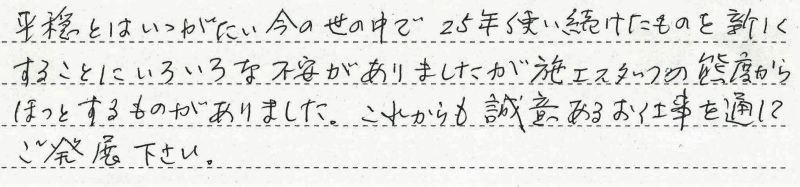 平穏とはいいがたい今の世の中で 25年使い続けたものを新しく
することにいろいろな不安がありましたが施工スタッフの態度から
ほっとするものがありました。これからも誠意あるお仕事を通して
ご発展下さい。